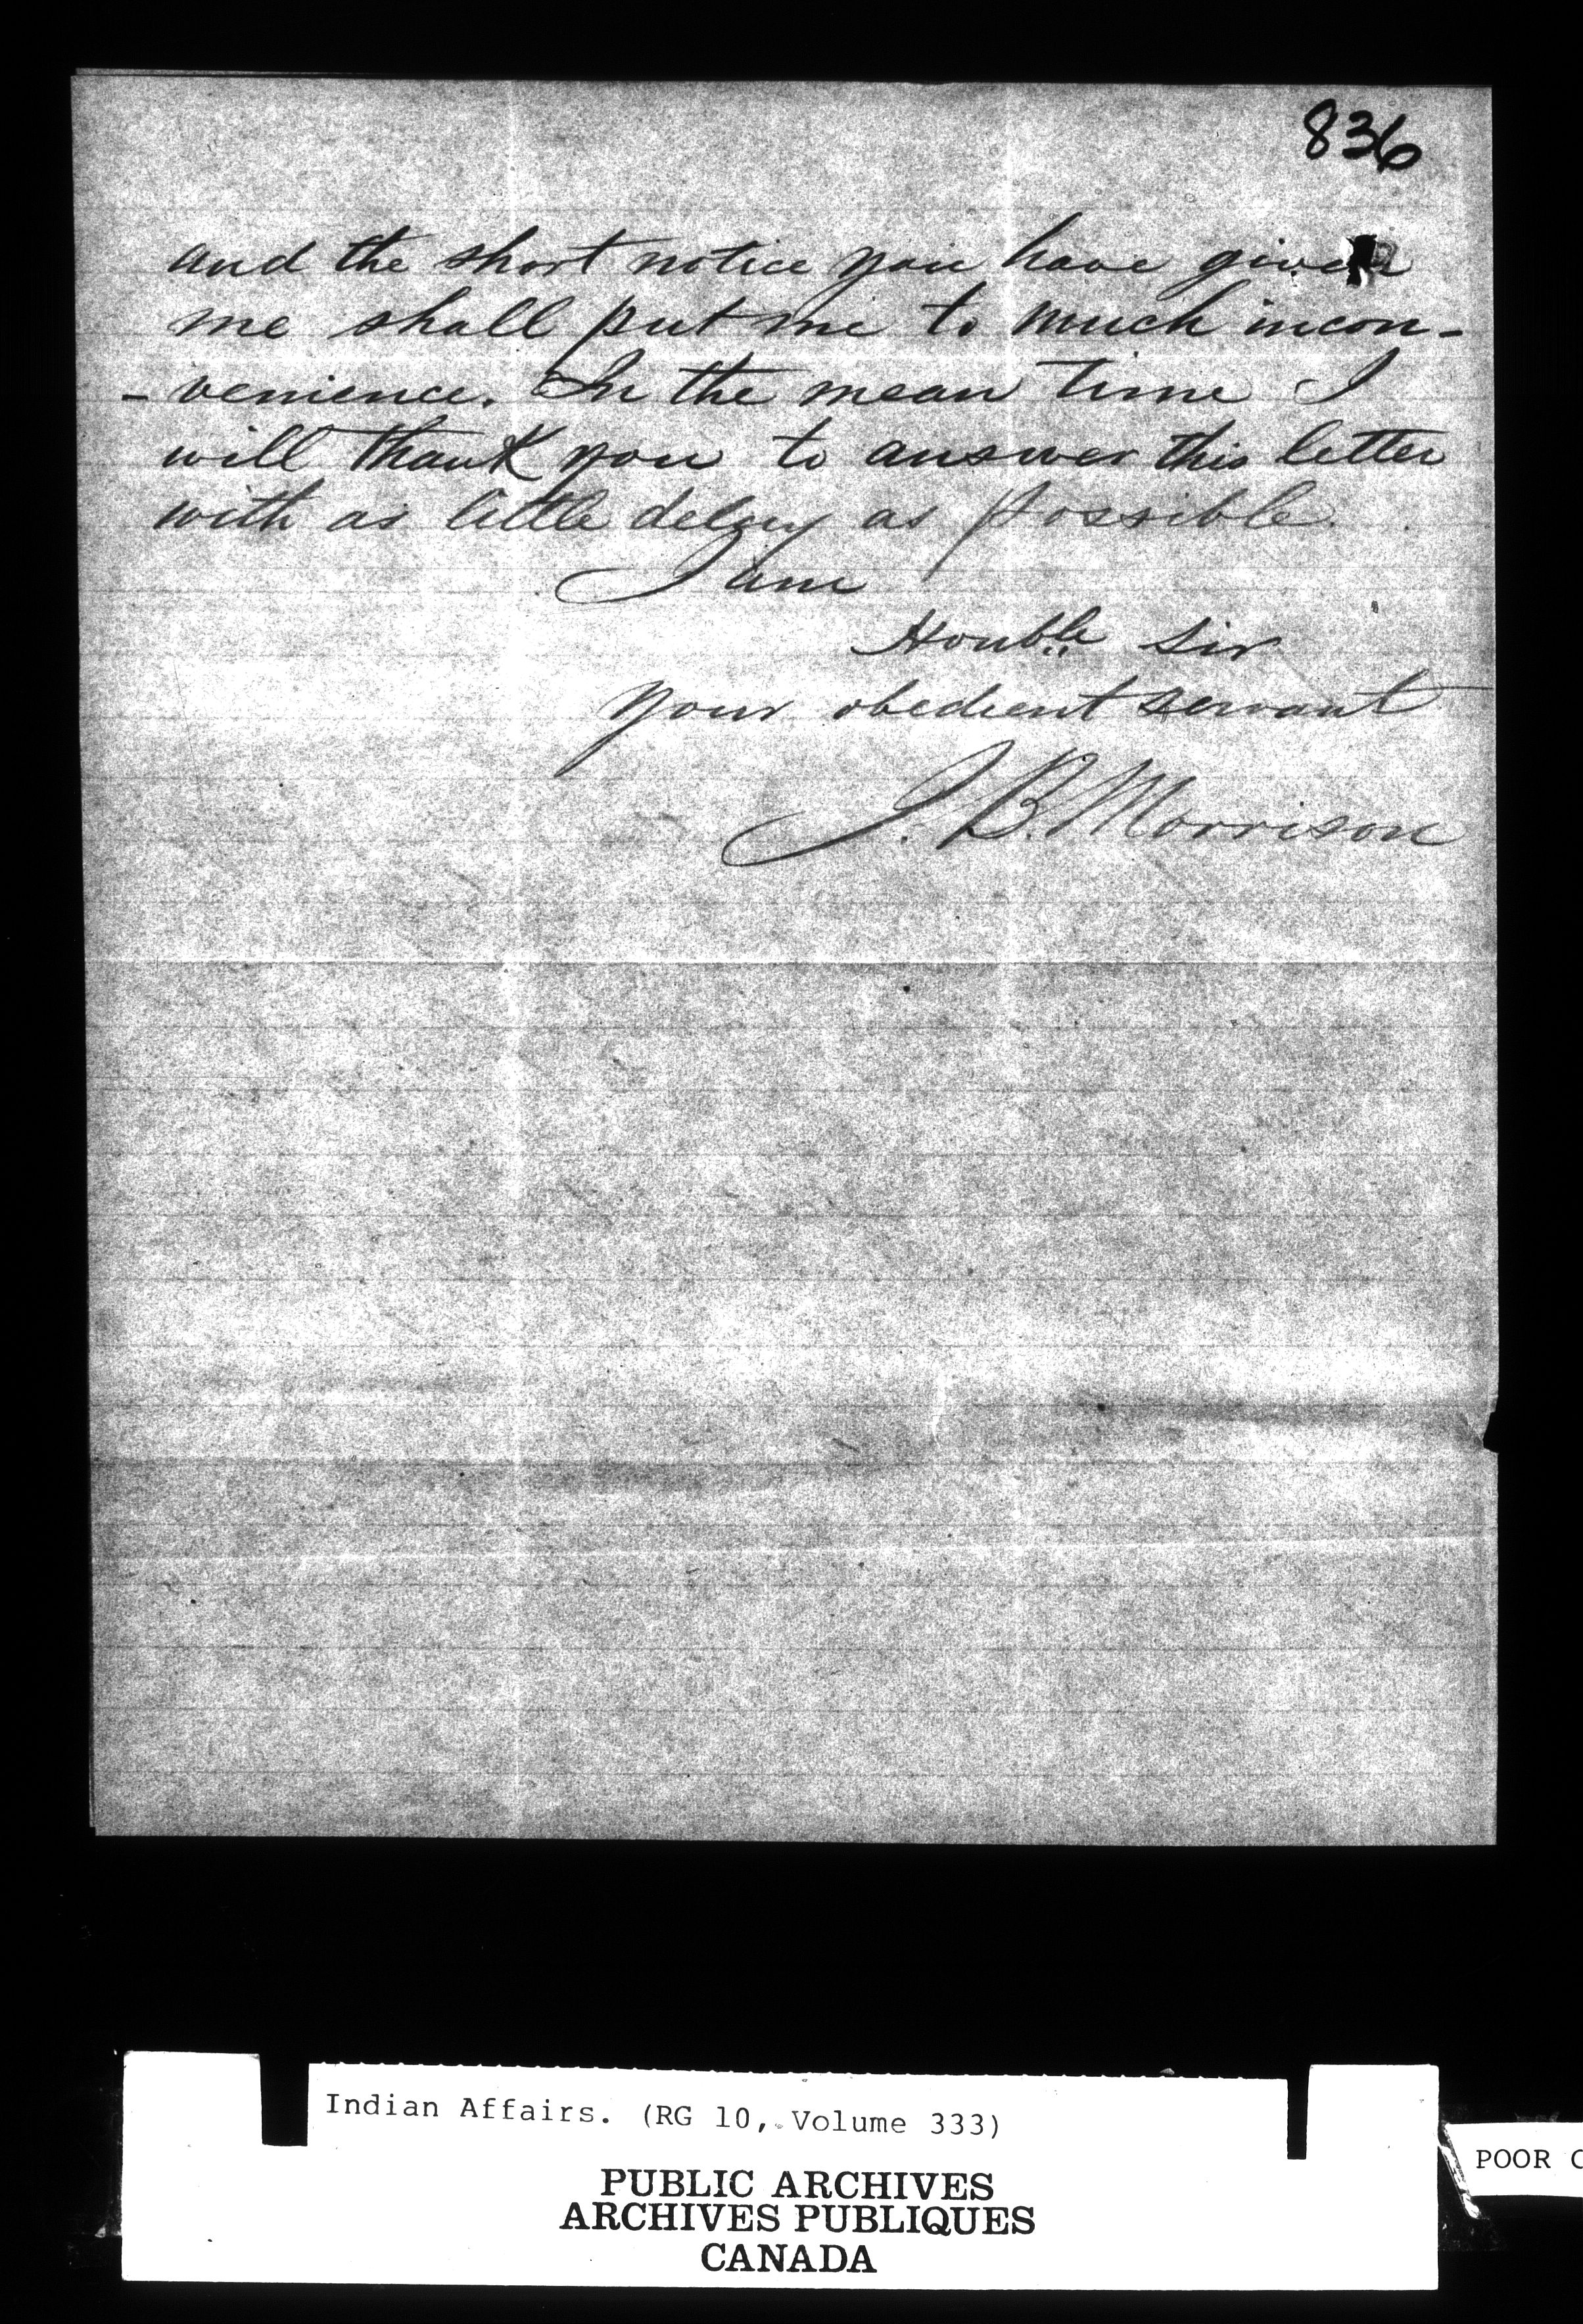 836
and the short notice you have given
me shall put me to much incon-
-venience. In the mean time I
will thank you to answer this letter
with as little delay as possible.
I am
Honble Sir
your obedient servant
J. B. Morrison
Indian Affairs. (RG 10, Volume 333)
PUBLIC ARCHIVES
ARCHIVES PUBLIQUES
CANADA
POOR C